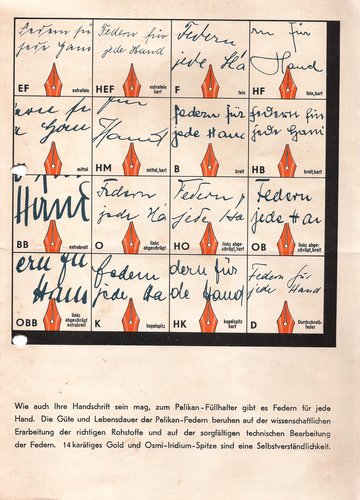 Federn fü
jede Hand
EF
extrafein
Federn für
jede Hand
HEF
extrafein, hart
Federn
jede Ha
F
fein
rn für
Hand
HF
fein, hart
ern fü
Han
mittel
für
Hand
HM
mittel, hart
federn für
jede Hand
B
breit
federn für
jede Han
HB
breit, hart
Hand
BB
extrabreit
Federn
jede Ha
O
links
abgeschrägt
Federn f
jede Ha
HO
links abge-
schrägt, hart
Federn
jede Han
OB
links abge-
schrägt, breit
ern fü
Han
OBB
links
abgeschrägt
extrabreit
federn
jede Ha
K
kugelspitz
dern für
de Hand
HK
kugelspitz
hart
Federn für
jede Hand
D
Durchschreib-
feder
Wie auch Ihre Handschrift sein mag, zum Pelikan-Füllhalter gibt es Federn für jede
Hand. Die Güte und Lebensdauer der Pelikan-Federn beruhen auf der wissenschaftlichen
Erarbeitung der richtigen Rohstoffe und auf der sorgfältigen technischen Bearbeitung
der Federn. 14 karätiges Gold und Osmi-Iridium-Spitze sind eine Selbstverständlichkeit.